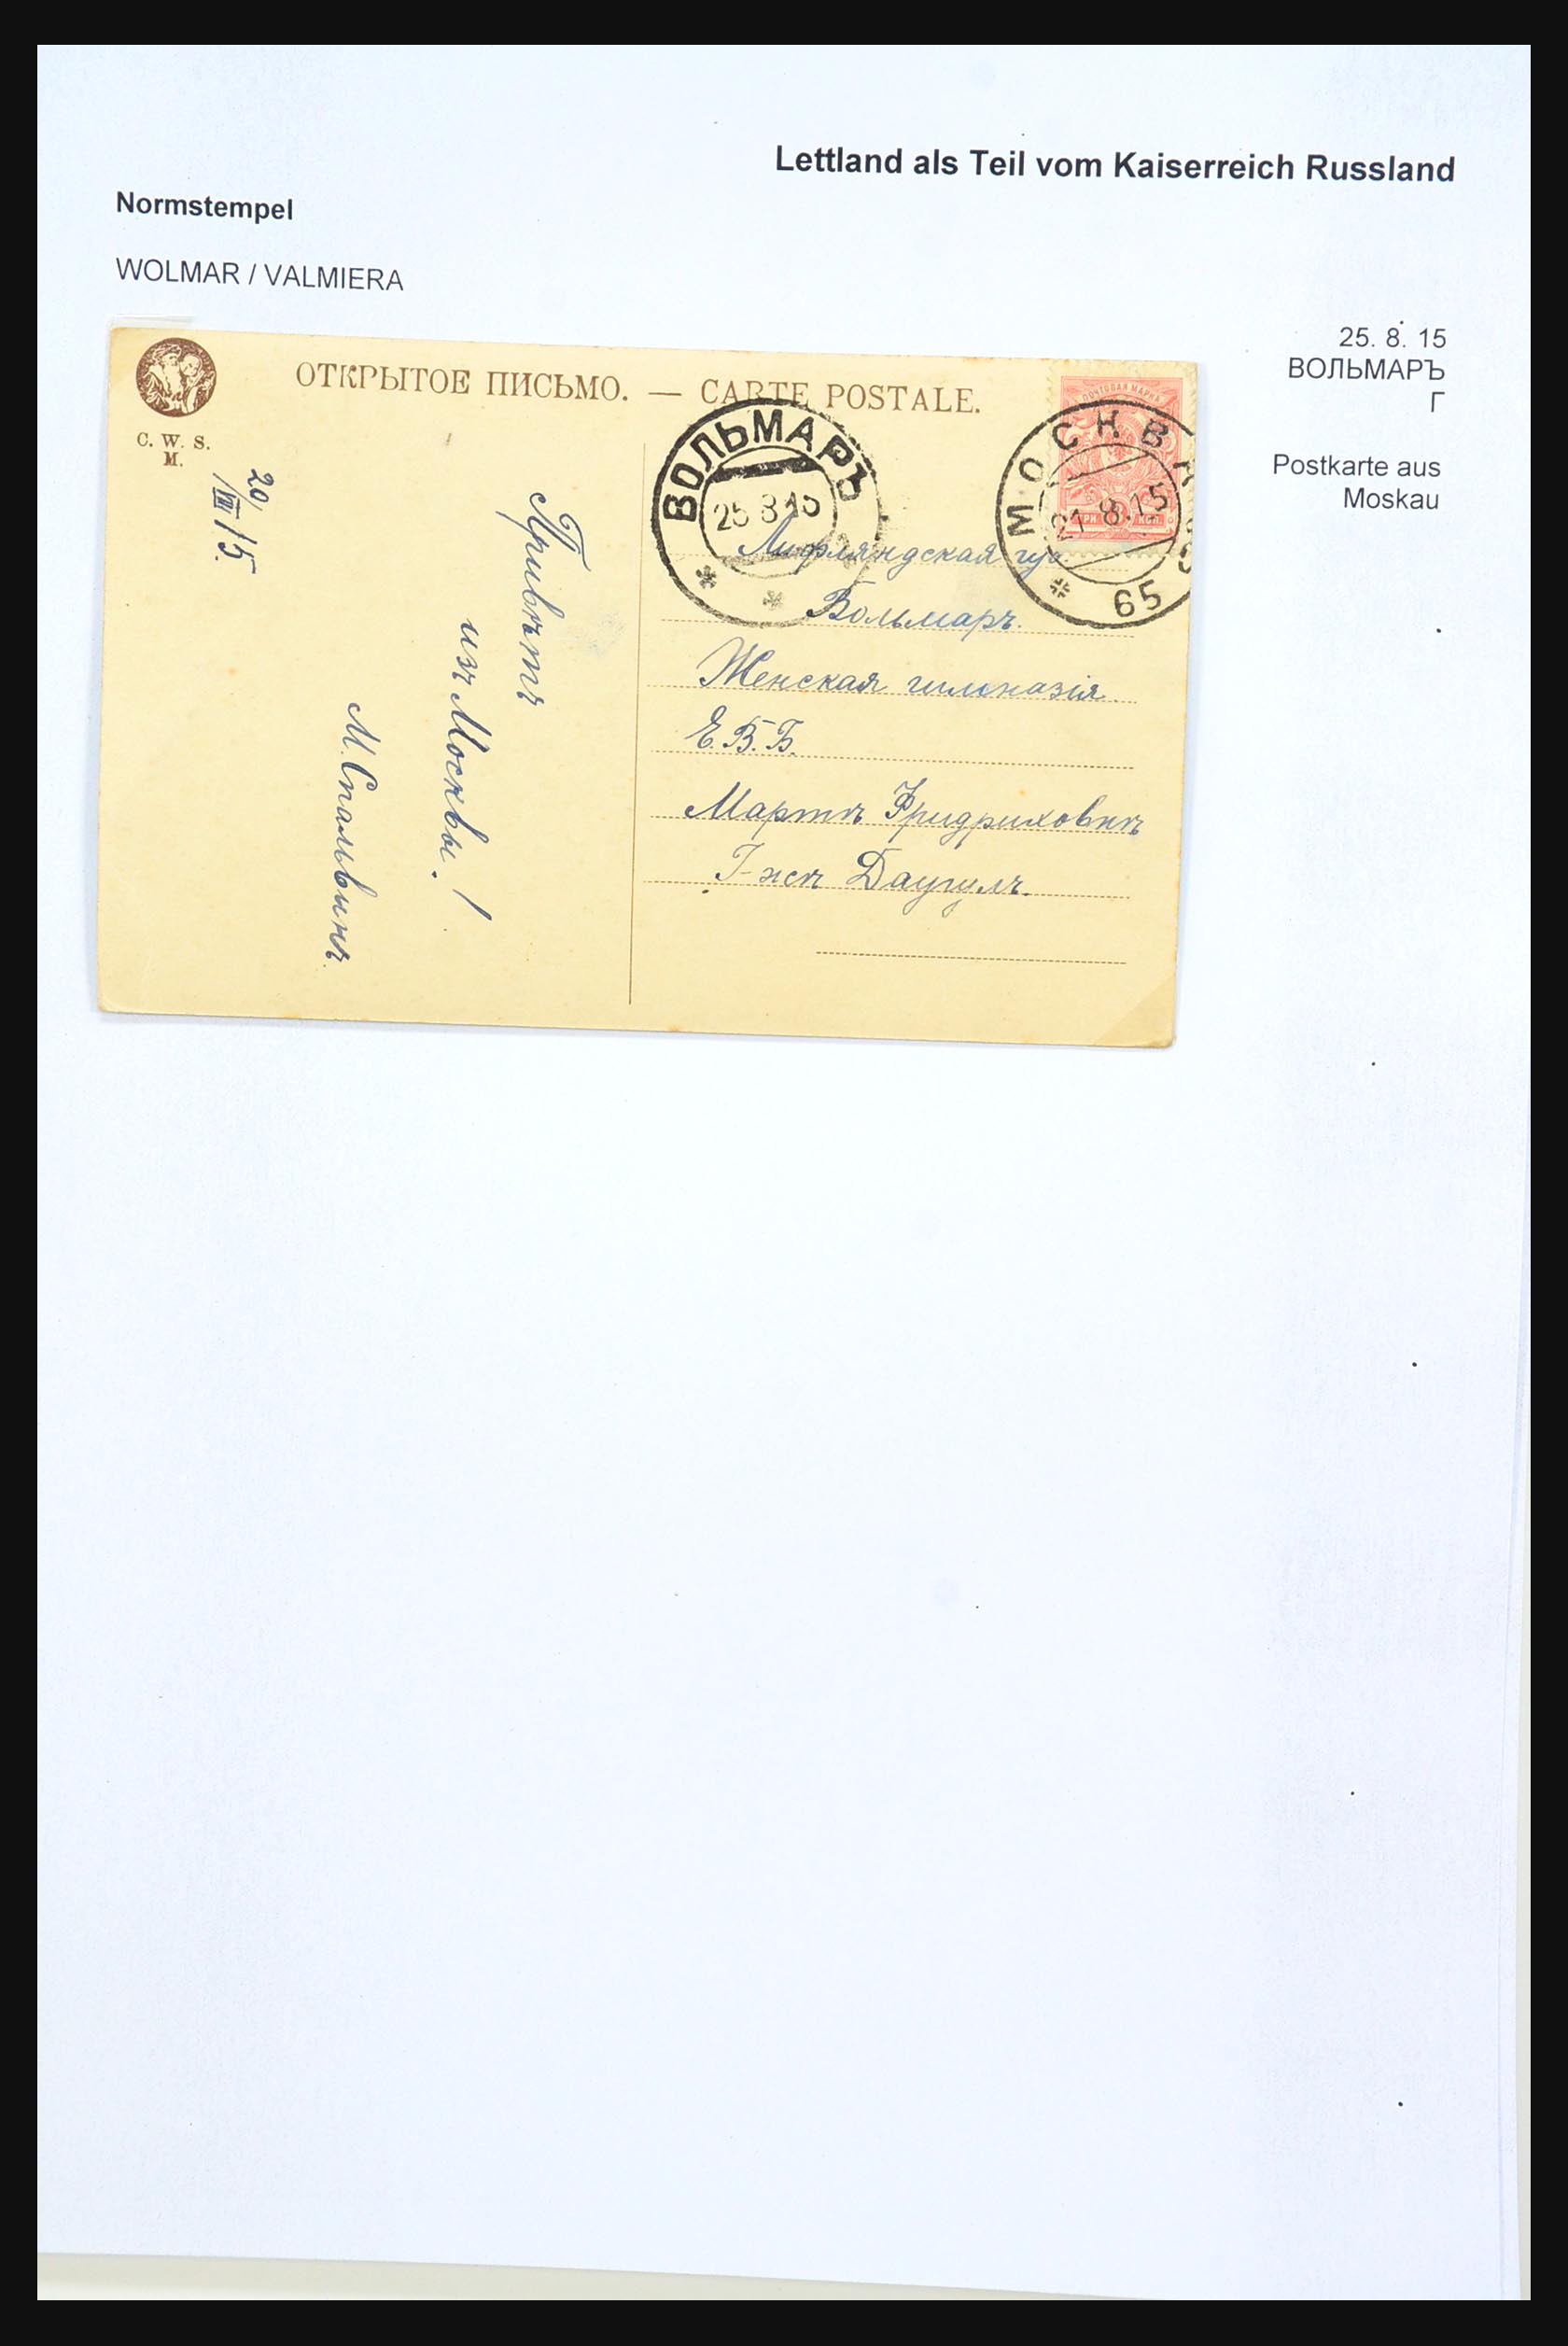 Lettland als Teil vom Kaiserreich Russland
Normstempel
WOLMAR / VALMIERA
25. 8. 15
ВОЛЬМАРЪ
Г
Postkarte aus
Moskau
ОТКРЫТОЕ ПИСЬМО. — CARTE POSTALE.
C. W. S.
M.
20/VIII 15.
Привѣтъ
изъ Москвы!
М. Спальвинъ.
ВОЛЬМАРЪ
25 8 15
ПОЧТОВАЯ МАРКА
КОП.
МОСКВА
21.8.15
65
Лифляндская губ.
Вольмаръ.
Женская гимназія
Е. В. Б.
Мартѣ Фридриховнѣ
Г-жѣ Даугулъ.